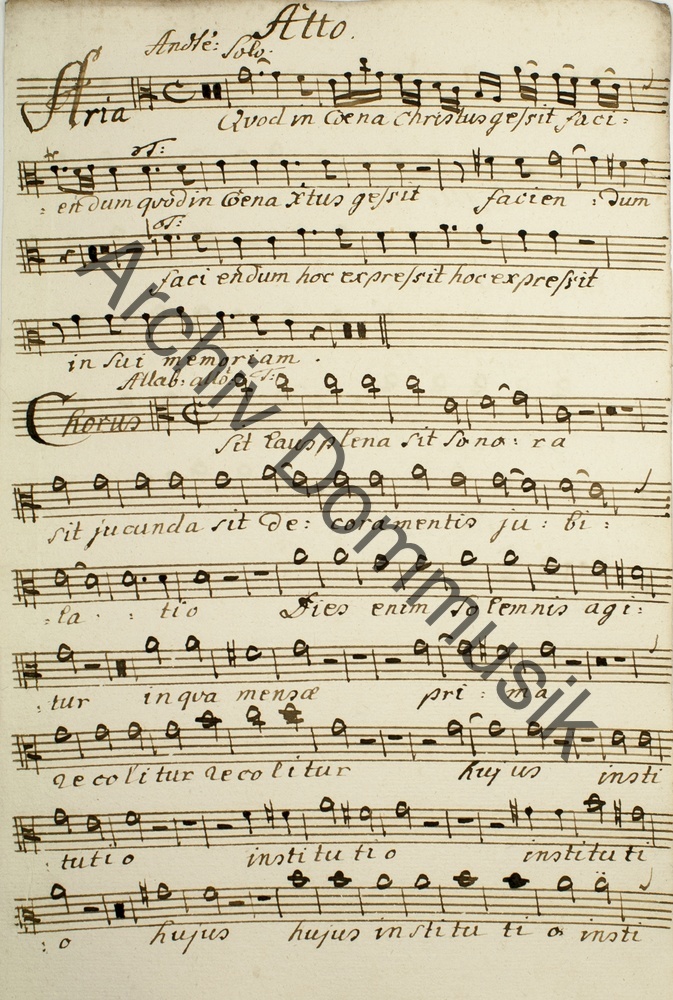 Alto.
Andte: Solo.
Aria
Quod in Coena Christus gessit faci:
tr
: endum quod in Coena Xtus gessit facien : dum
faci endum hoc expressit hoc expressit
in sui memoriam .
Allab:
Chorus
sit laus plena sit sono: ra
sit jucunda sit de: cora mentis ju: bi:
:la : tio Dies enim solemnis agi:
: tur in qva mensæ pri: ma
recolitur recolitur hujus insti
: tutio institutio instituti
: o hujus hujus institutio insti
Archiv Dommusik